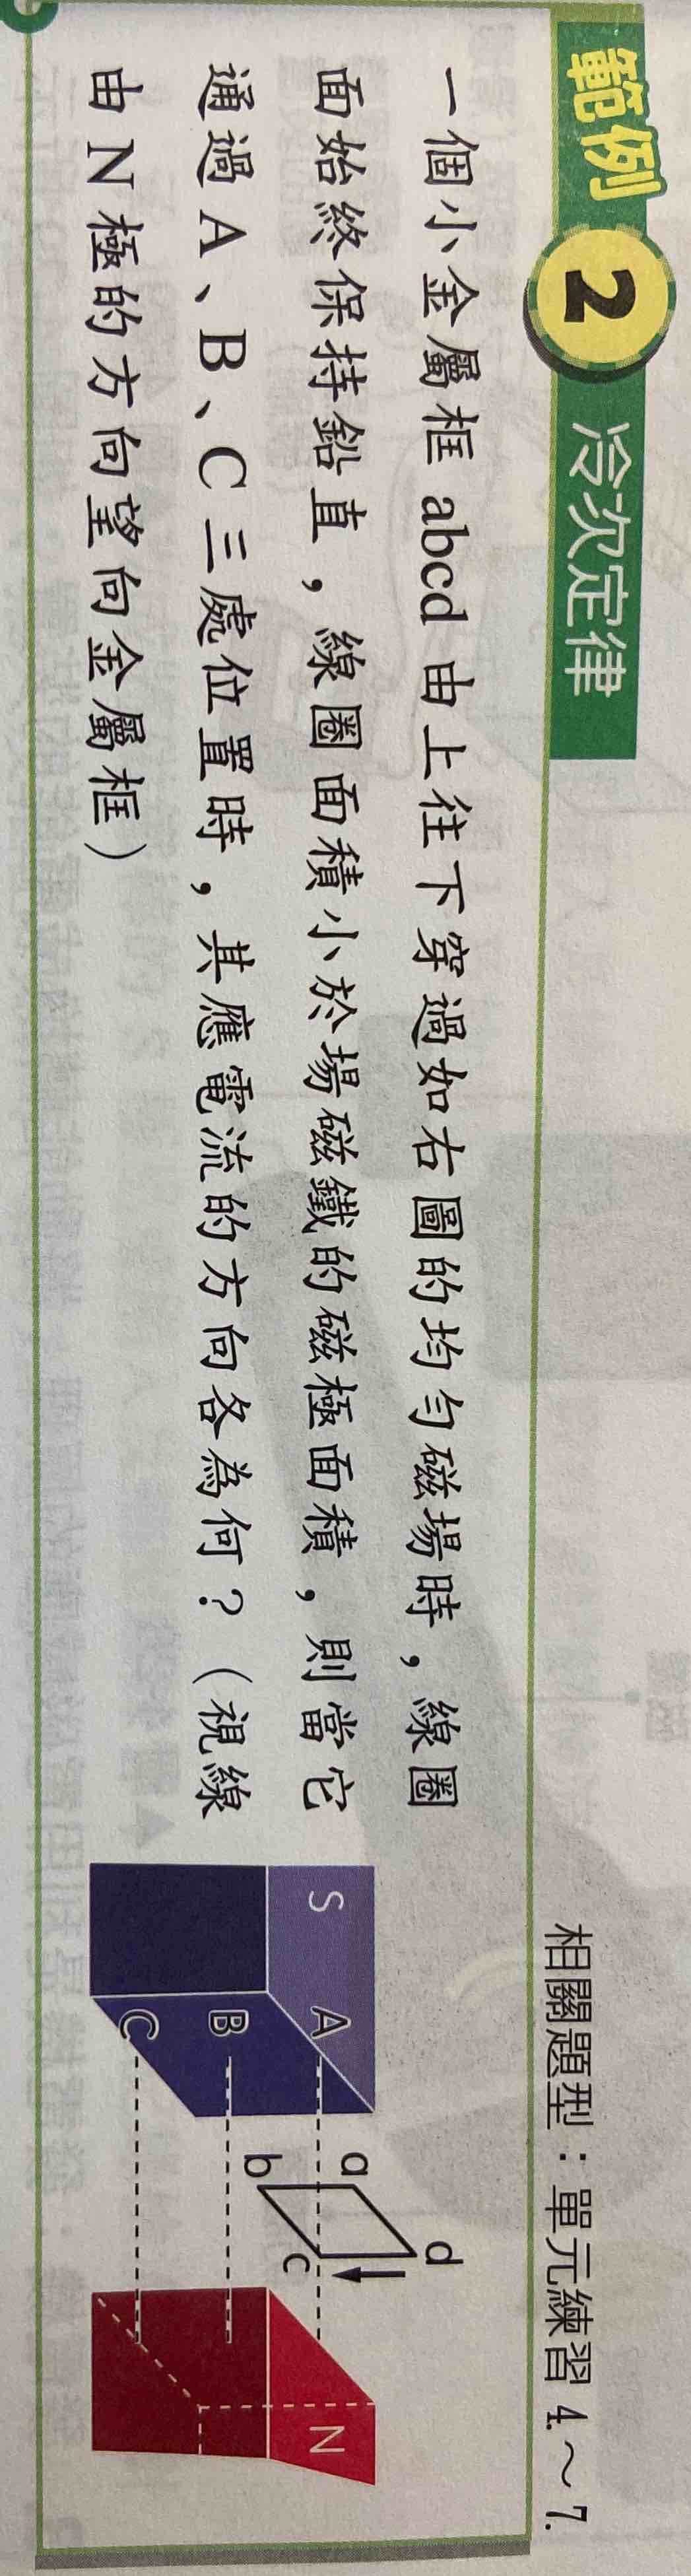 範例 2 冷次定律
相關題型：單元練習 4.～7.
一個小金屬框 abcd 由上往下穿過如右圖的均勻磁場時，線圈
面始終保持鉛直，線圈面積小於場磁鐵的磁極面積，則當它
通過 A、B、C 三處位置時，其應電流的方向各為何？（視線
由 N 極的方向望向金屬框）
S
N
A
B
C
a
b
c
d